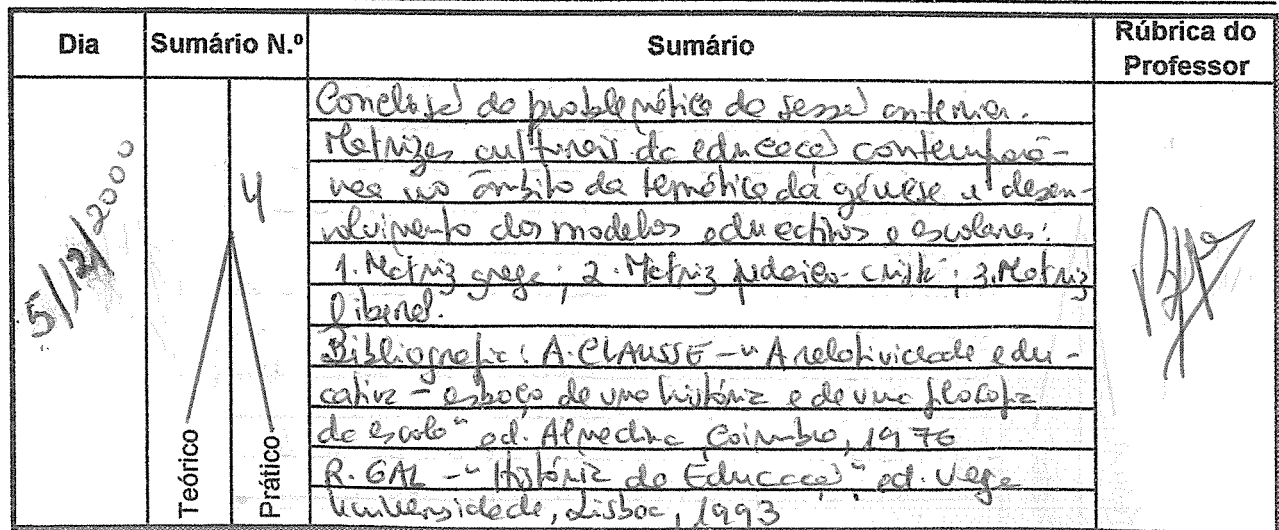 Dia Sumário N.º Sumário Rúbrica do Professor
5/12/2000
4
Teórico
Prático
Conclusão da problemática da sessão anterior.
Matrizes culturais da educação contemporâ-
nea no âmbito da temática da génese e desen-
volvimento dos modelos educativos e escolares:
1. Matriz grega; 2. Matriz judaico-cristã; 3. Matriz
liberal.
Bibliografia: A. CLAUSSE - "A relatividade edu-
cativa - esboço de uma história e de uma filosofia
da escola" ed. Almedina Coimbra, 1976
R. GAL - "História da Educação" ed. Vega
Universidade, Lisboa, 1993